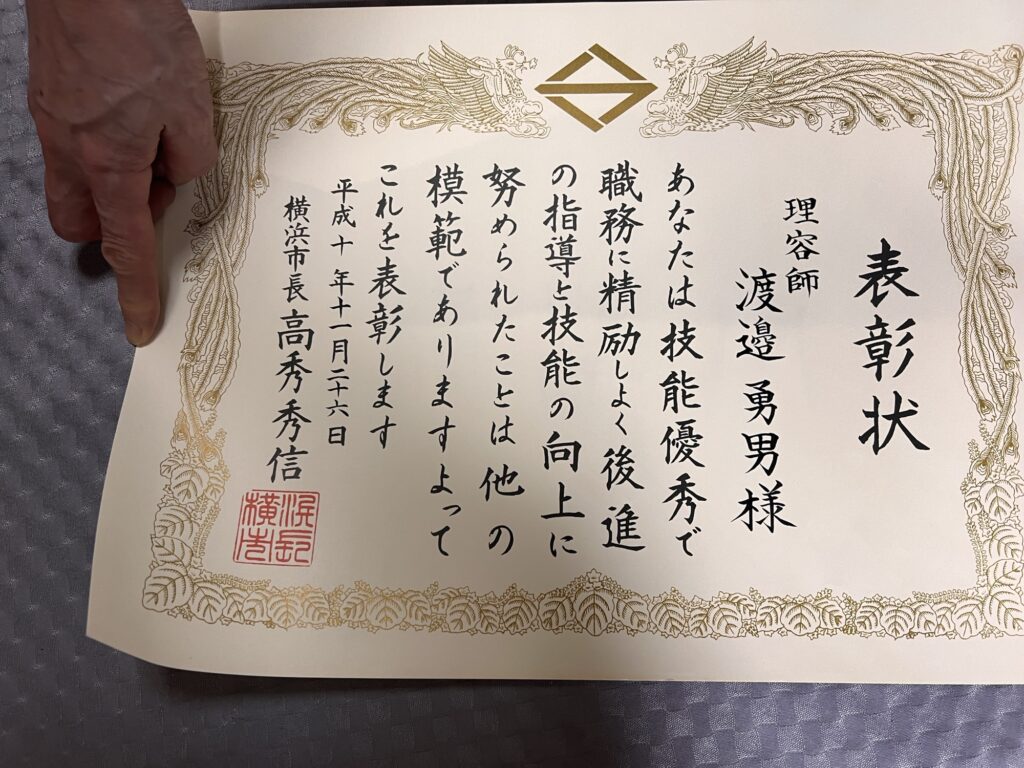 表彰状
理容師
渡邉 勇男様
あなたは技能優秀で
職務に精励しよく後進
の指導と技能の向上に
努められたことは他の
模範でありますよって
これを表彰します
平成十年十一月二十六日
横浜市長 高秀秀信
横浜市長